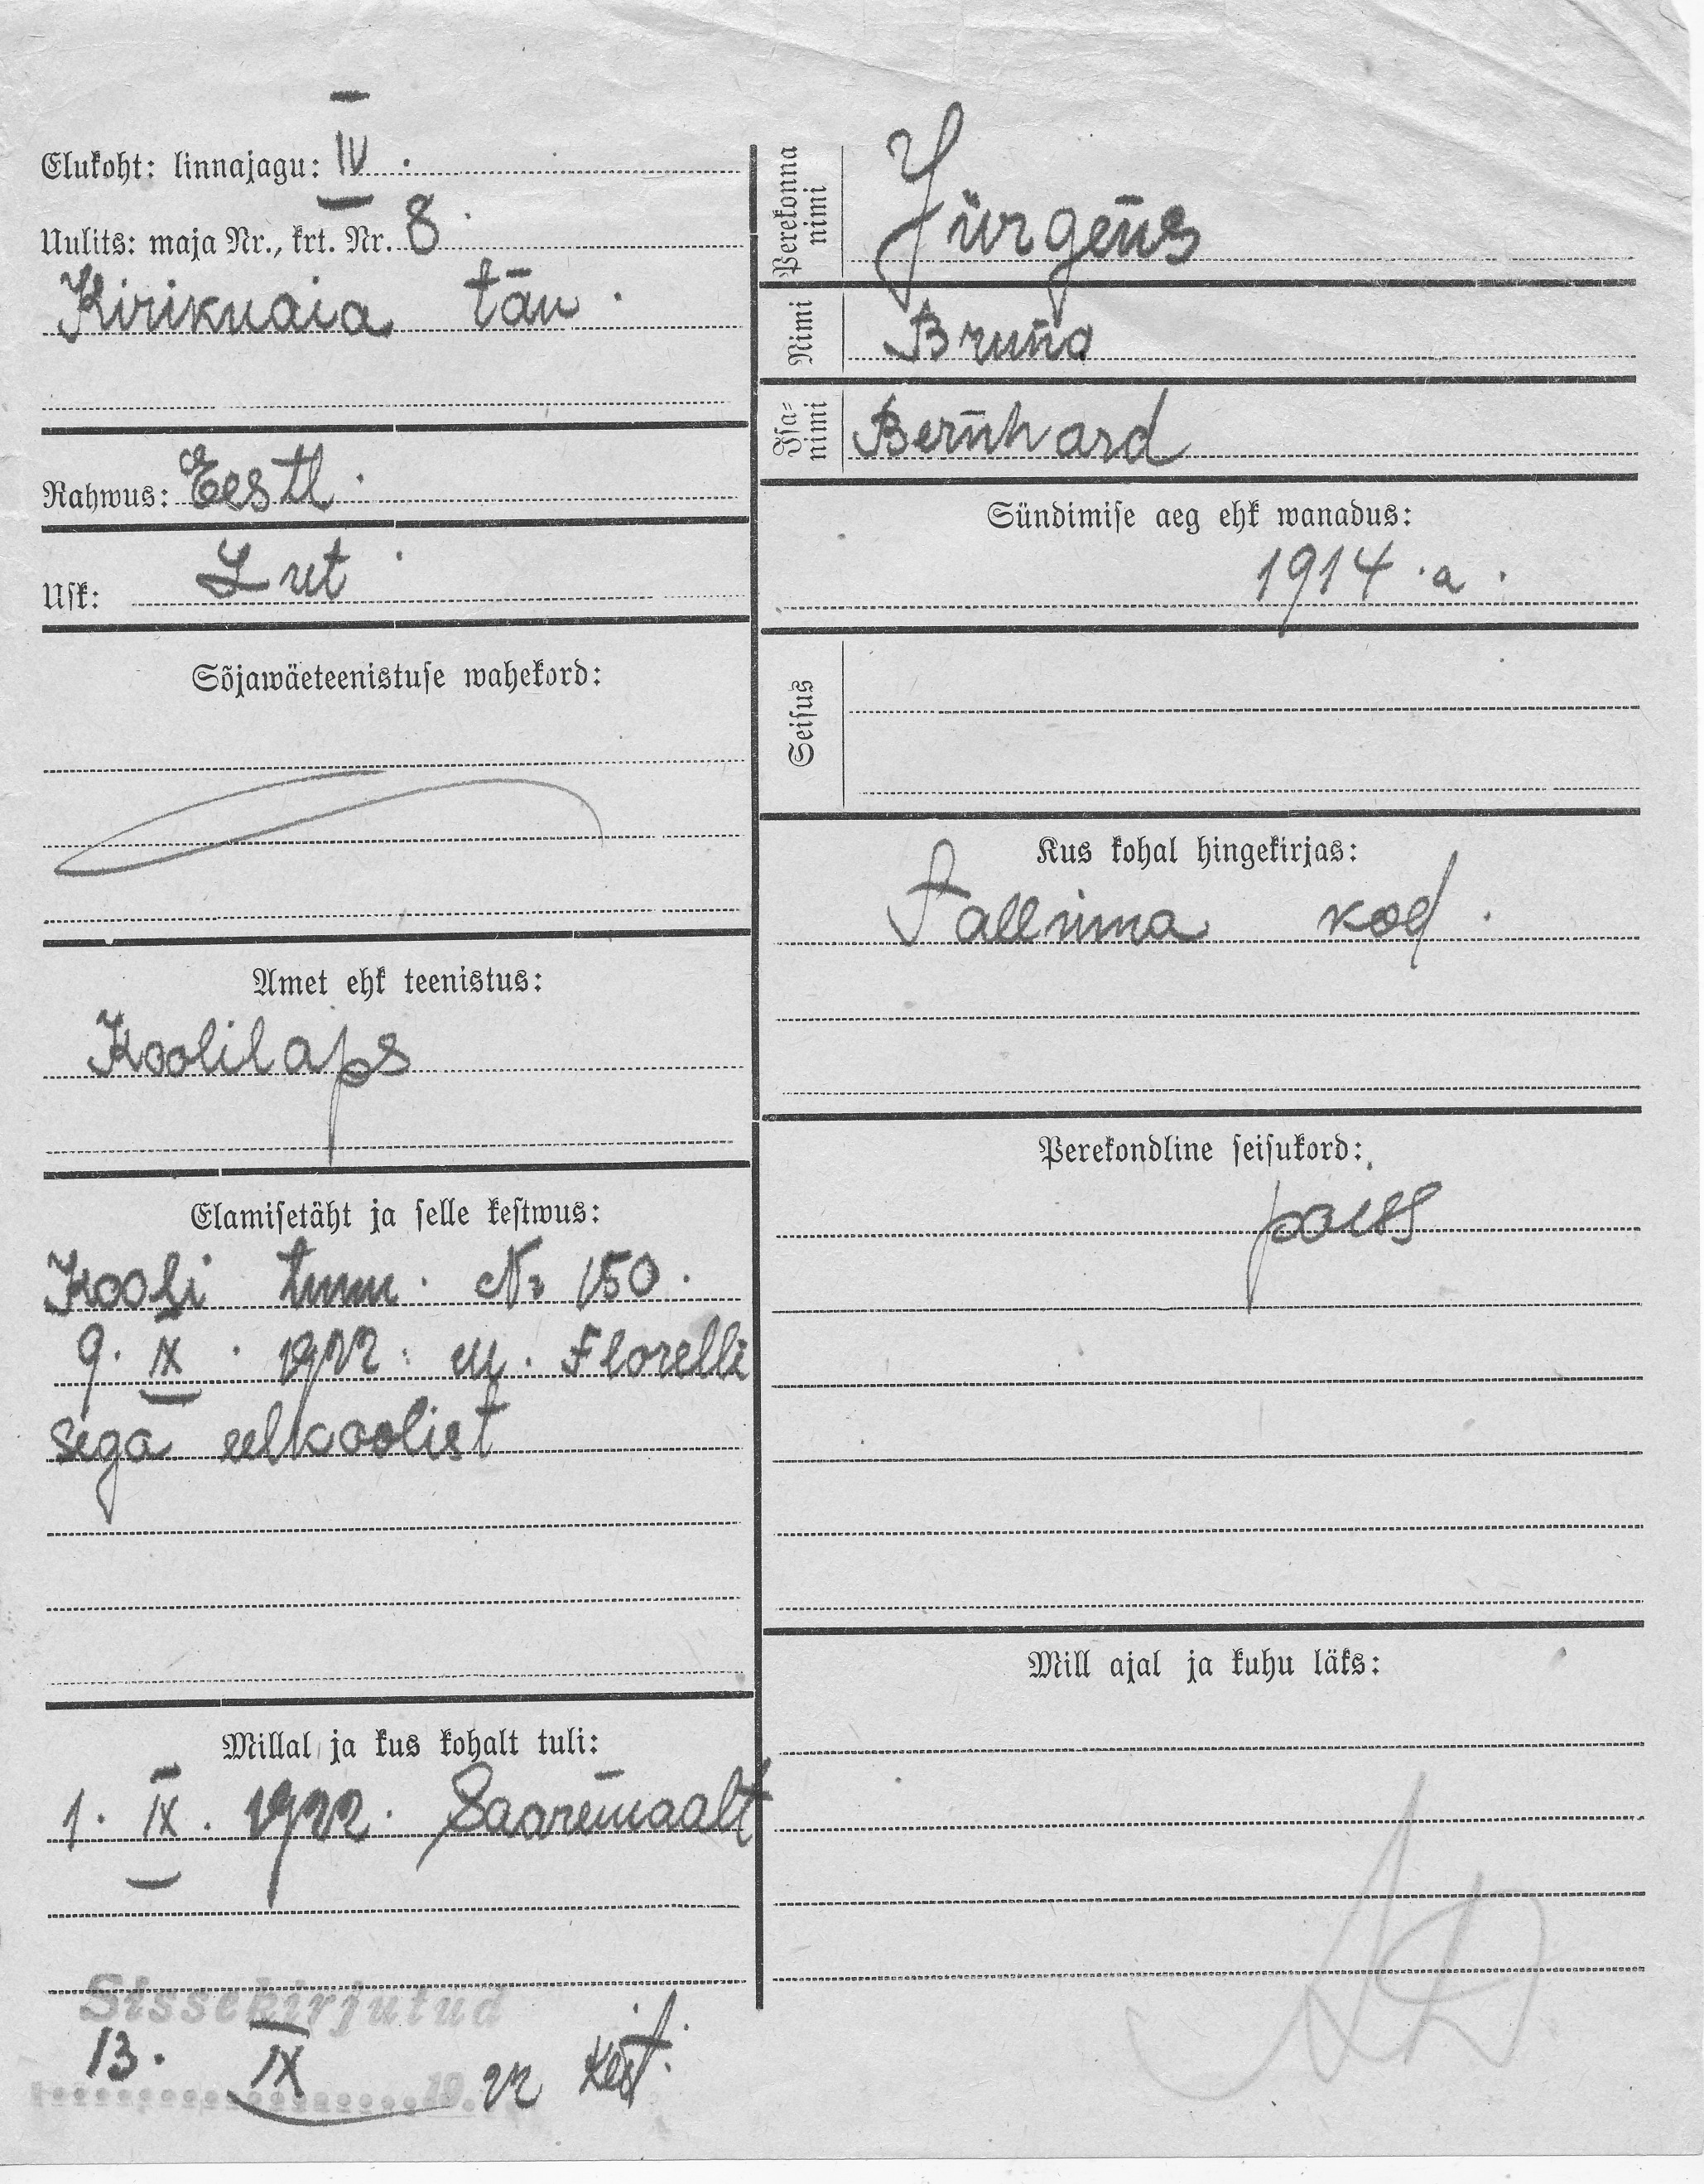 Elukoht: linnajagu: IV.
Uulits: maja Nr., krt. Nr. 8.
Kirikuaia tän.
Rahwus: Eestl.
Usk: Lut.
Sõjawäeteenistuse wahekord:
Amet ehk teenistus:
Koolilaps
Elamisetäht ja selle kestwus:
Kooli tunn. № 150.
9. IX. 1922. M. Florelli
sega eelkoolist
Millal ja kus kohalt tuli:
1. IX. 1922. Saaremaalt
Sissekirjutud
13. IX 19. 22
Perekonna
nimi
Jürgens
Nimi Bruno
Isa-
nimi
Bernhard
Sündimise aeg ehk wanadus:
1914.a.
Seisus
Kus kohal hingekirjas:
Tallinna kod.
Perekondline seisukord:
poiss
Mill ajal ja kuhu läks: